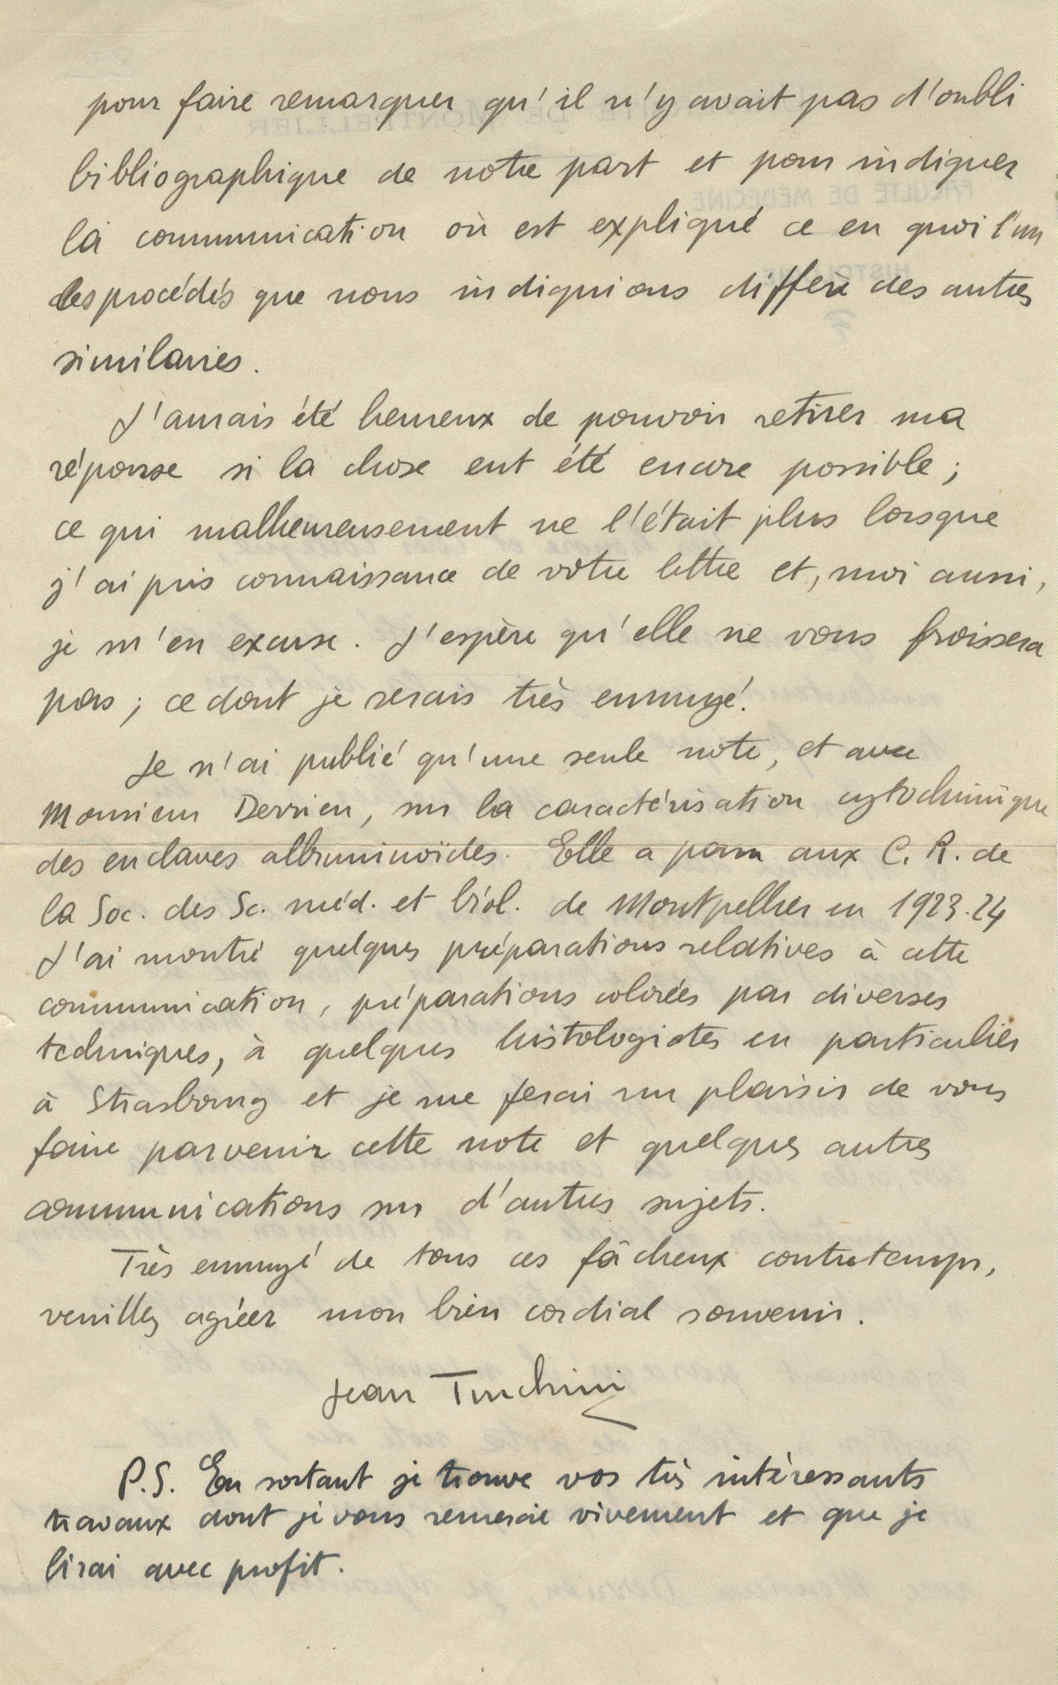 pour faire remarquer qu'il n'y avait pas d'oubli
bibliographique de notre part et pour indiquer
la communication où est expliqué ce en quoi l'un
des procédés que nous indiquions diffère des autres
similaires.
J'aurais été heureux de pouvoir retirer ma
réponse si la chose eut été encore possible ;
ce qui malheureusement ne l'était plus lorsque
j'ai pris connaissance de votre lettre et, moi aussi,
je m'en excuse. J'espère qu'elle ne vous froissera
pas ; ce dont je serais très ennuyé.
Je n'ai publié qu'une seule note, et avec
Monsieur Derrien, sur la caractérisation cytochimique
des enclaves albuminoïdes. Elle a paru aux C. R. de
la Soc. des Sc. méd. et biol. de Montpellier en 1923-24
J'ai montré quelques préparations relatives à cette
communication, préparations colorées par diverses
techniques, à quelques histologistes en particulier
à Strasbourg et je me ferai un plaisir de vous
faire parvenir cette note et quelques autres
communications sur d'autres sujets.
Très ennuyé de tous ces fâcheux contretemps,
veuillez agréer mon bien cordial souvenir.
Jean Turchini
P.S. En sortant je trouve vos très intéressants
travaux dont je vous remercie vivement et que je
lirai avec profit.